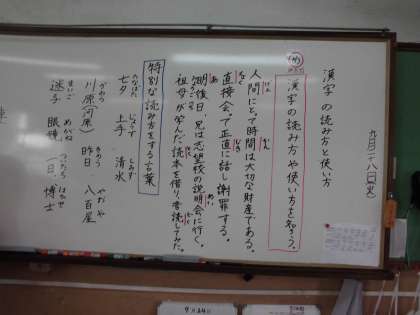 九月二十八日(火)
漢字の読み方と使い方
め 漢字の読み方や使い方を知ろう。
人間にとって時間は大切な財産である。
直接会って正直に話し謝罪する。
明後日、兄は志望校の説明会に行く。
祖母が学んだ読本を借り、音読してみた。
特別な読み方をする言葉
たなばた じょうず しみず
七夕 上手 清水
かわら きのう やおや
川原(河原) 昨日 八百屋
まいご めがね ついたち はかせ
迷子 眼鏡 一日 博士